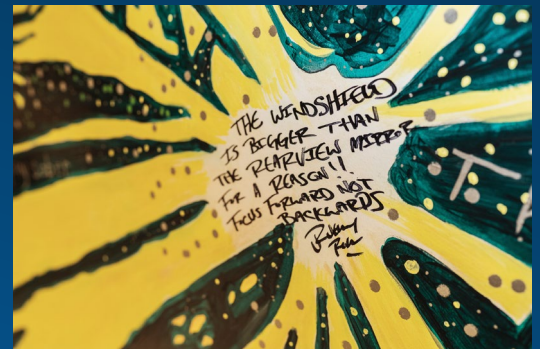 THE WINDSHIELD
IS BIGGER THAN
THE REARVIEW MIRROR
FOR A REASON!!
FOCUS FORWARD NOT
BACKWARDS